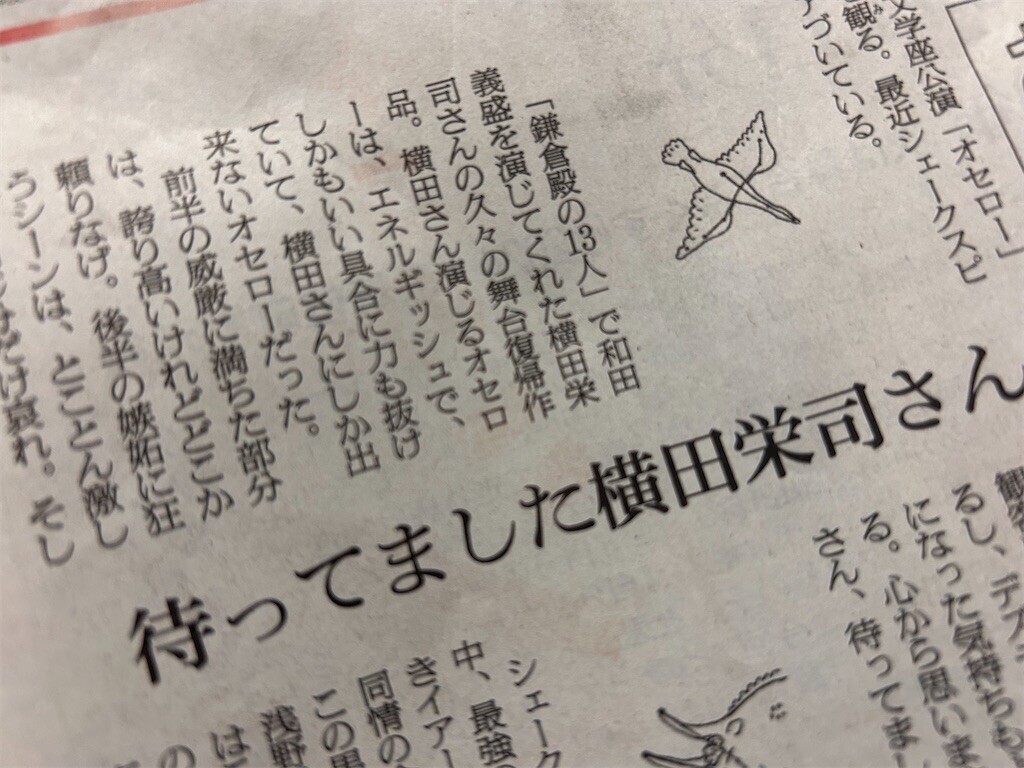 文学座公演「オセロー」
観る。最近シェークスピ
アづいている。
「鎌倉殿の13人」で和田
義盛を演じてくれた横田栄
司さんの久々の舞台復帰作
品。横田さん演じるオセロ
ーは、エネルギッシュで、
しかもいい具合に力も抜け
ていて、横田さんにしか出
来ないオセローだった。
前半の威厳に満ちた部分
は、誇り高いけれどどこか
頼りなげ。後半の嫉妬に狂
うシーンは、とことん激し
だけ哀れ。そし
待ってました横田栄司さん
るし、デズデ
になった気持ちも
る。心から思いま
さん、待ってまし
シェーク
中、最強の
きイアー
同情の
この男
浅野
は
の